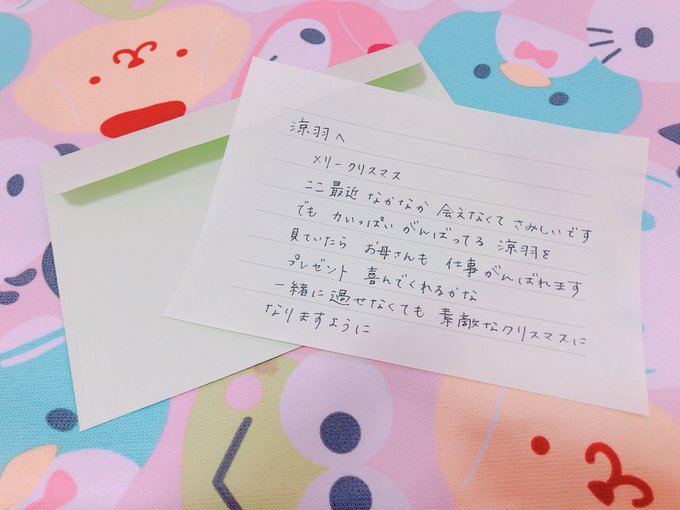 涼羽へ
メリークリスマス
ここ最近 なかなか 会えなくて さみしいです
でも 力いっぱい がんばってる 涼羽を
見ていたら お母さんも 仕事がんばれます
プレゼント 喜んでくれるかな
一緒に過せなくても 素敵なクリスマスに
なりますように